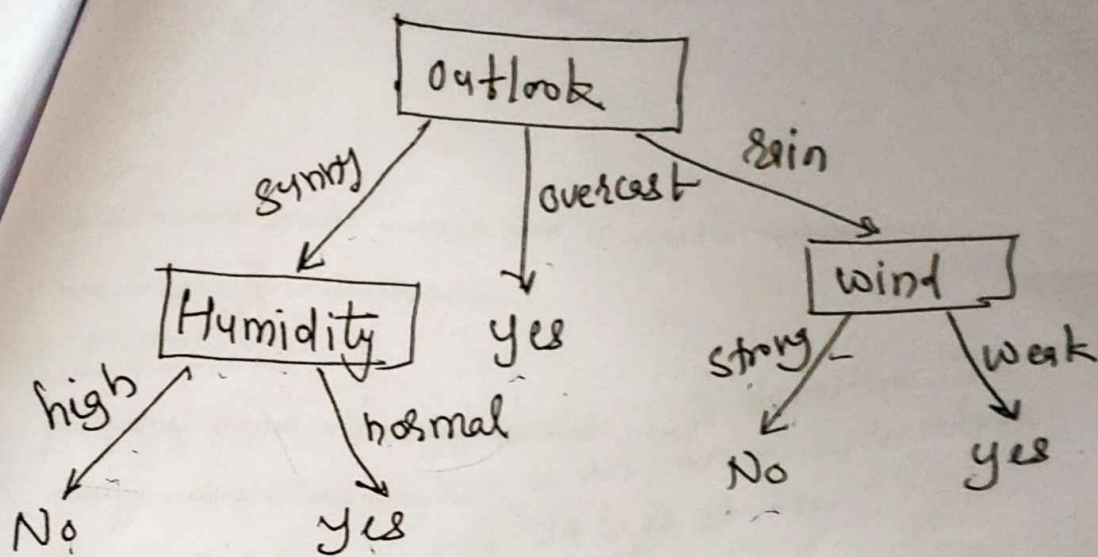 Outlook
sunny
overcast
rain
Humidity
yes
wind
high
normal
strong
weak
No
yes
No
yes